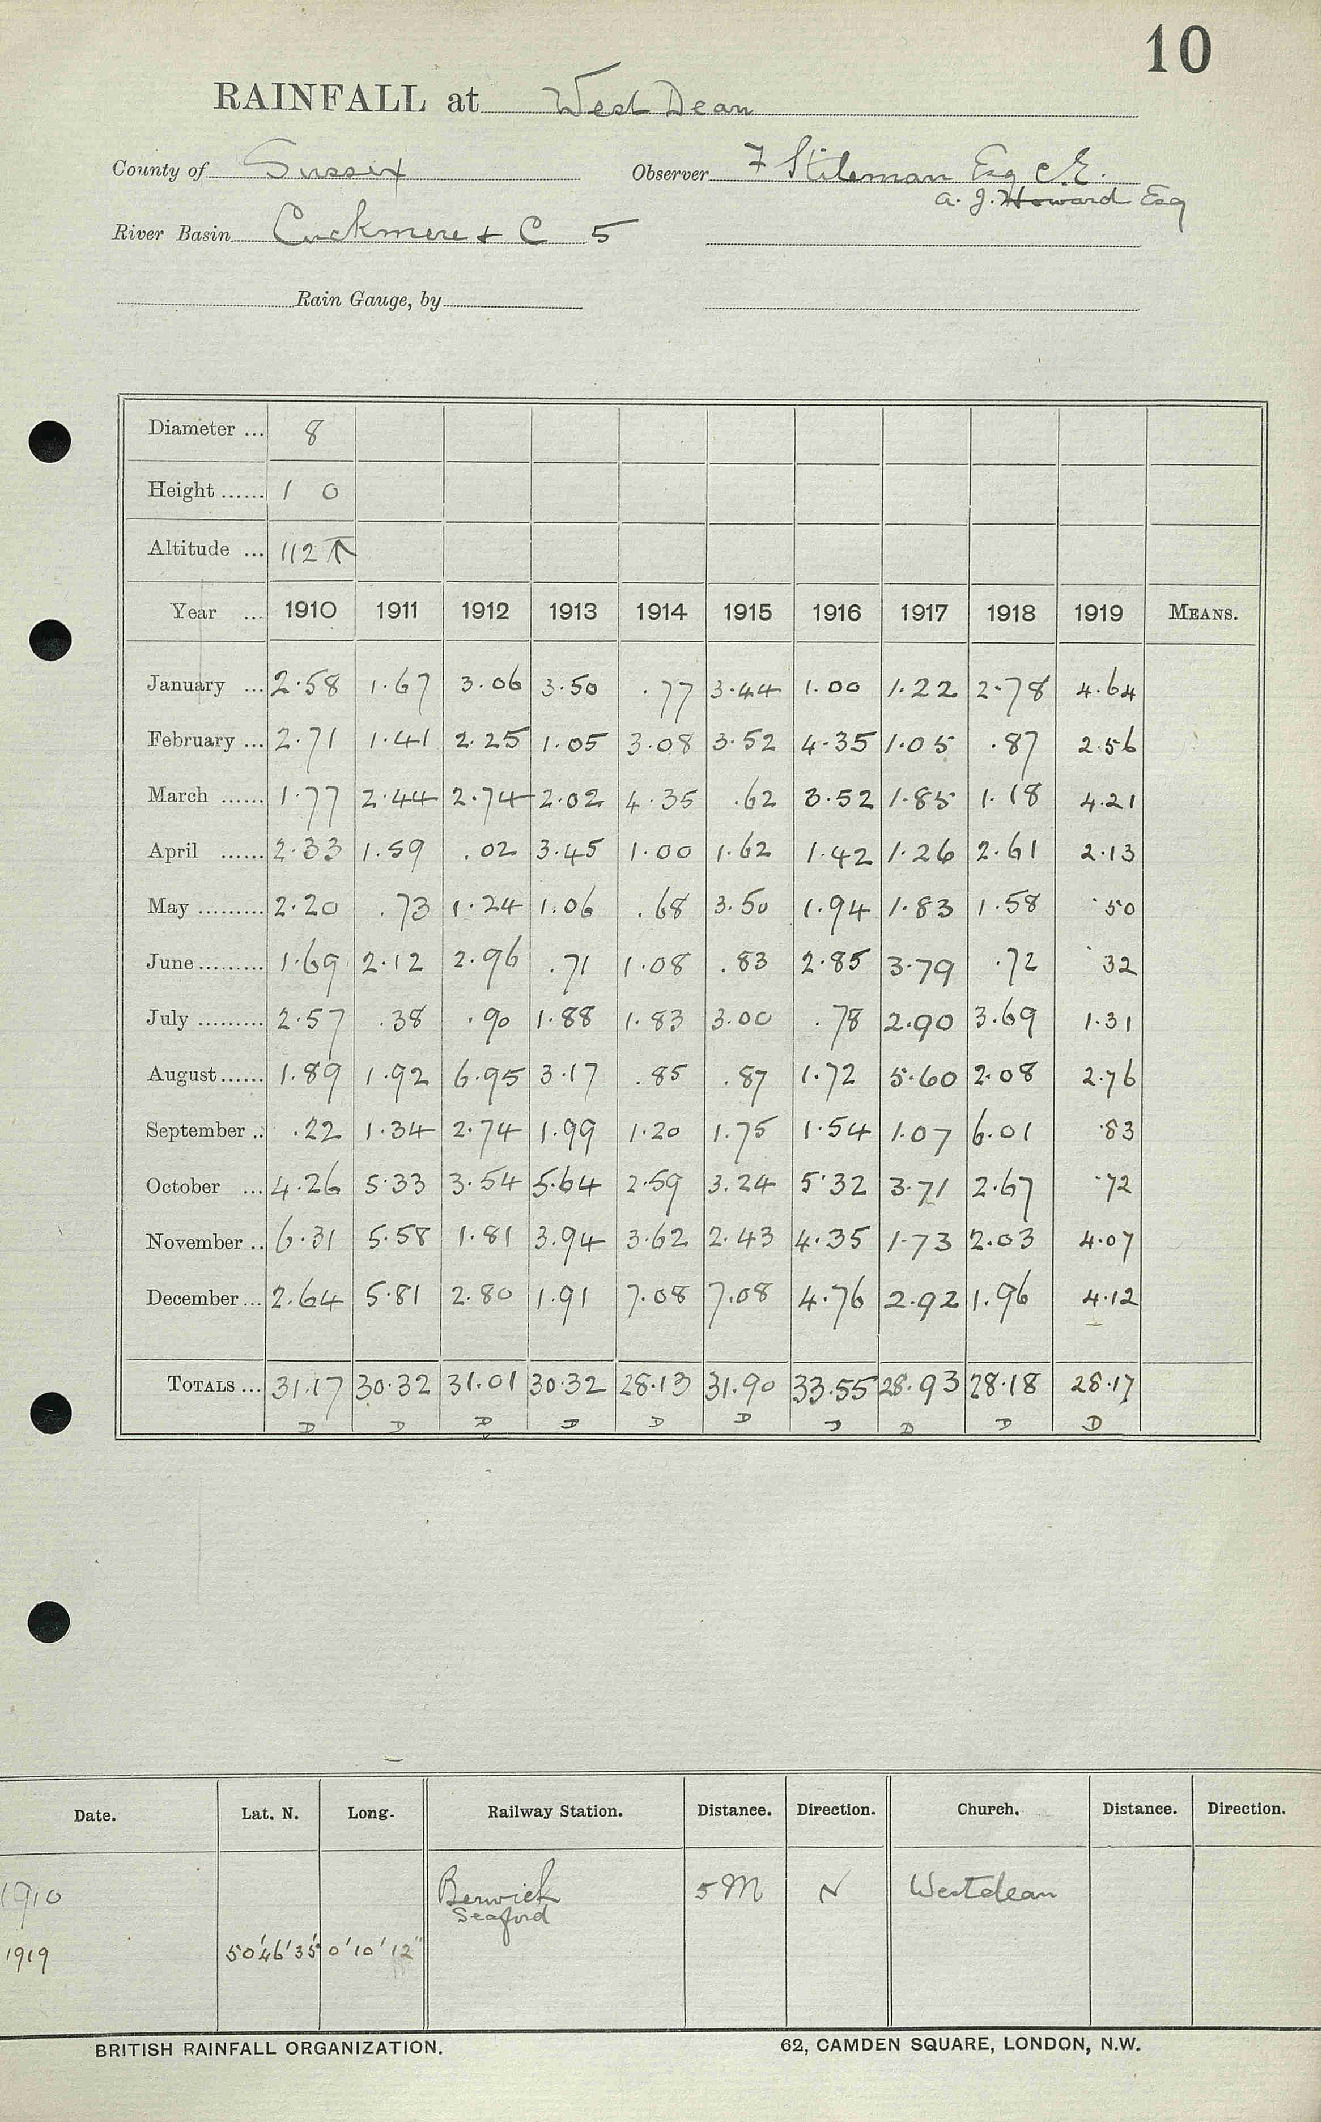 10
RAINFALL at West Dean
County of Sussex Observer F Stileman Esq C.E.
A. J. Howard Esq
River Basin Cuckmere + C 5
Rain Gauge, by
Diameter ... 8
Height ...... 1 0
Altitude ... 112 ↑
Year ... 1910 1911 1912 1913 1914 1915 1916 1917 1918 1919 MEANS.
January ... 2.58 1.67 3.06 3.50 .77 3.44 1.00 1.22 2.78 4.64
February ... 2.71 1.41 2.25 1.05 3.08 3.52 4.35 1.05 .87 2.56
March ...... 1.77 2.44 2.74 2.02 4.35 .62 3.52 1.85 1.18 4.21
April ...... 2.33 1.59 .02 3.45 1.00 1.62 1.42 1.26 2.61 2.13
May ......... 2.20 .73 1.24 1.06 .68 3.50 1.94 1.83 1.58 .50
June ......... 1.69 2.12 2.96 .71 1.08 .83 2.85 3.79 .72 .32
July ......... 2.57 .38 .90 1.88 1.83 3.00 .78 2.90 3.69 1.31
August ...... 1.89 1.92 6.95 3.17 .85 .87 1.72 5.60 2.08 2.76
September .. .22 1.34 2.74 1.99 1.20 1.75 1.54 1.07 6.01 .83
October ... 4.26 5.33 3.54 5.64 2.59 3.24 5.32 3.71 2.67 .72
November .. 6.31 5.58 1.81 3.94 3.62 2.43 4.35 1.73 2.03 4.07
December ... 2.64 5.81 2.80 1.91 7.08 7.08 4.76 2.92 1.96 4.12
TOTALS ... 31.17 30.32 31.01 30.32 28.13 31.90 33.55 28.93 28.18 28.17
D D D D D D D D D D
Date. Lat. N. Long. Railway Station. Distance. Direction. Church. Distance. Direction.
1910 Berwick 5 M N Westdean
Seaford
1919 50°46'35" 0°10'12"
BRITISH RAINFALL ORGANIZATION. 62, CAMDEN SQUARE, LONDON, N.W.